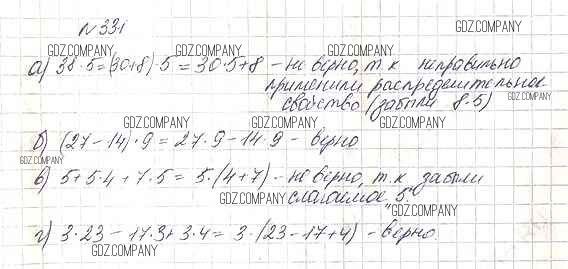 № 331
GDZ.COMPANY
GDZ.COMPANY GDZ.COMPANY GDZ.COMPANY
а) 38·5=(30+8)·5=30·5+8 - не верно, т.к неправильно
применили распределительное
свойство (забыли 8·5) GDZ.COMPANY
GDZ.COMPANY GDZ.COMPANY GDZ.COMPANY
б) (27-14)·9=27·9-14·9 - верно
GDZ.COMPANY
в) 5+5·4+7·5=5·(4+7) - не верно, т.к забыли
GDZ.COMPANY слагаемое 5. GDZ.COMPANY
г) 3·23-17·3+3·4=3·(23-17+4) - верно.
GDZ.COMPANY GDZ.COMPANY